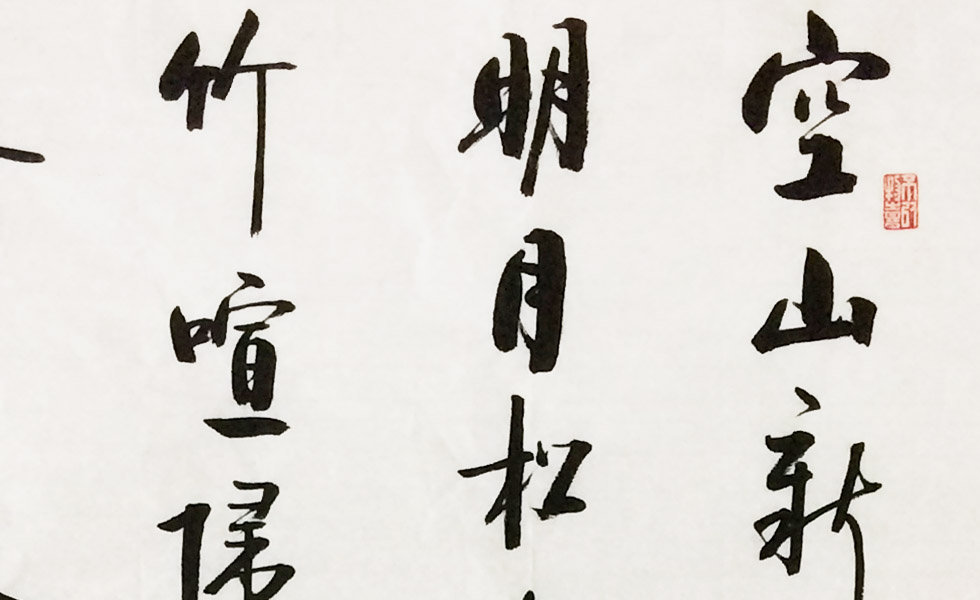 空山新
明月松
竹喧歸